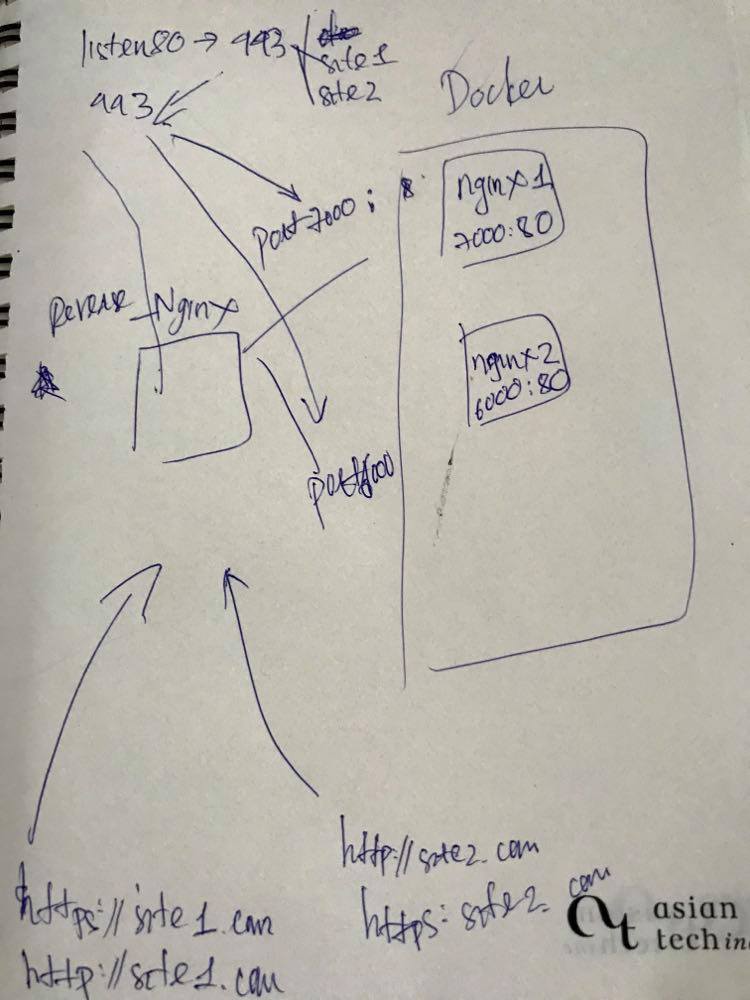 listen 80 → 443
site1
site2
443
Docker
nginx1
7000:80
port 7000 :
Reverse Nginx
nginx2
6000:80
http://site2.com
https: site2.com
https://site1.com
http://site1.com
at asian
tech inc